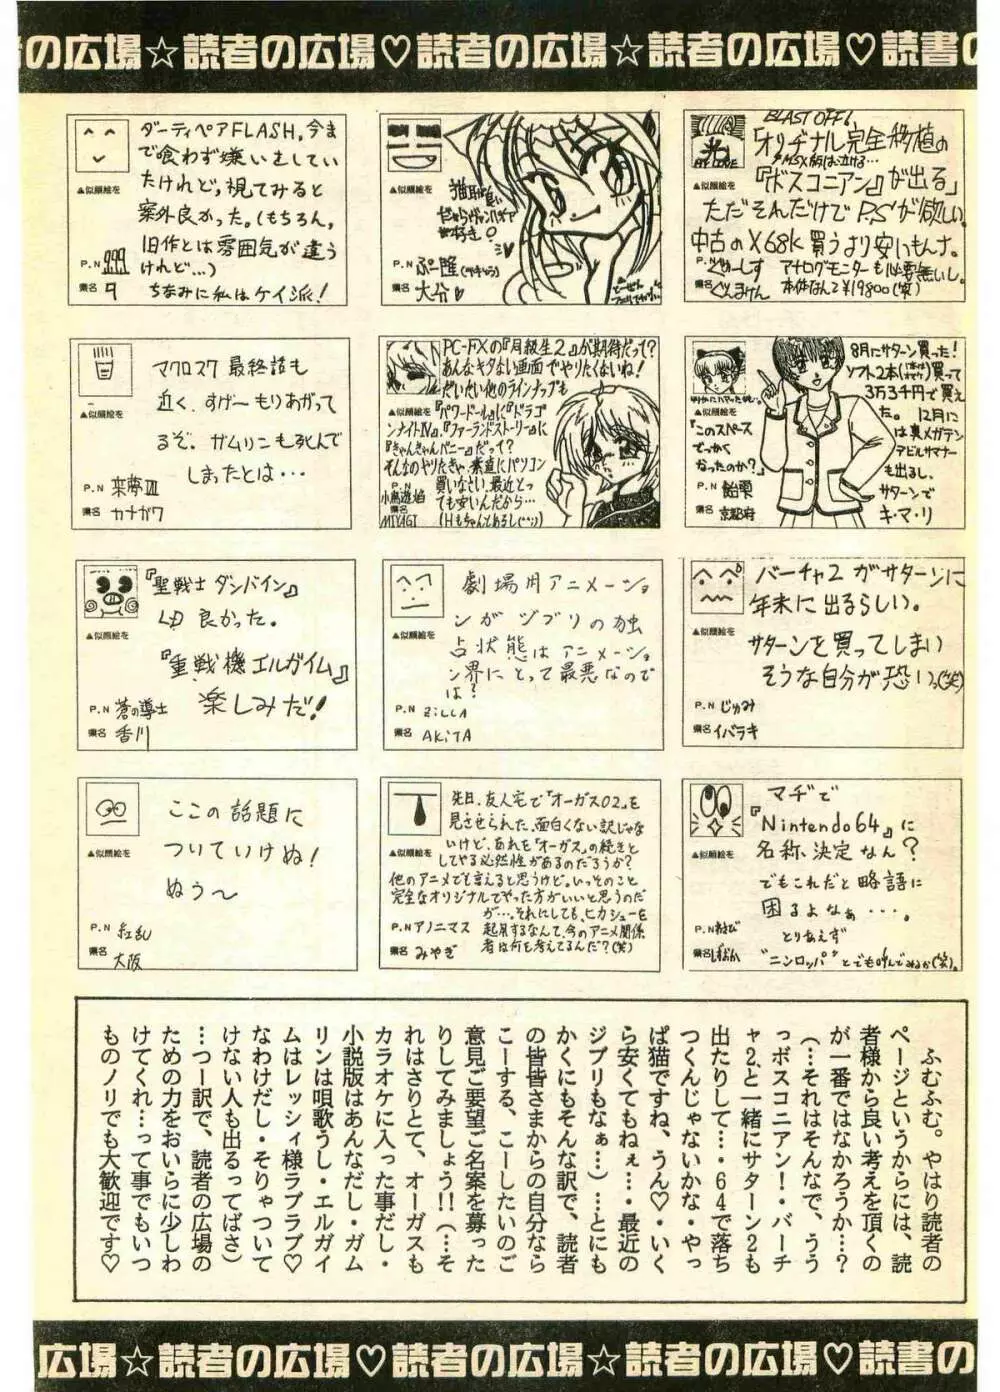 の広場☆読者の広場♡読者の広場☆読者の広場♡読書の
ダーティペアFLASH。今ま
で食わず嫌いをしてい
たけれど。視てみると
案外良かった。(もちろん。
旧作とは雰囲気が違う
けれど…)
ちなみに私はケイ派!
▲似顔絵を
P.N 999
県名 9
猫耳は良い
▲似顔絵を
P.N ぷー隆
県名 大分♡
BLAST OFF!
「オリヂナル完全移植の
MSX版は泣ける…
『ボスコニアン』が出る」
ただそれだけでP.Sが欲しい。
中古のX68k買うより安いもんナ。
アナログモニターも必要無いし。
本体なんて¥19800(笑)
▲似顔絵を
P.N ぐりーしす
県名 ぐんまけん
マクロス7 最終話も
近く、すげーもりあがって
るぞ、ガムリンも死んで
しまったとは・・・
▲似顔絵を
P.N 来夢VII
県名 カナガワ
PC-FXの『同級生2』が期待だって?
あんなキタない画面でやりたくないね!
だいたい他のラインナップも
『パワードール』に『ドラゴ
ンナイトⅣ』、『ファーランドストーリー』に
『きゃんきゃんバニー』だって?
そんなのやりたきゃ、素直にパソコン
買いなさい、最近とっ
ても安いんだから…
(Hもちゃんとあるし(^^;))
▲似顔絵を
P.N 小鳥遊 焰
県名 MIYAGI
8月にサターン買った!
ソフト2本買って
3万3千円で買え
た。12月に
は真メガテン
デビルサマナー
も出るし、
サターンで
キ・マ・リ
▲似顔絵を
『このスペース
でっかく
なったのか?』
P.N 飴栗
県名 京都府
『聖戦士ダンバイン』
LD良かった。
『重戦機エルガイム』
楽しみだ!
▲似顔絵を
P.N 蒼の導士
県名 香川
劇場用アニメーショ
ンがヅブリの独
占状態はアニメーショ
ン界にとって最悪なので
は?
▲似顔絵を
P.N ZiLLA
県名 AKiTA
バーチャ2がサターンに
年末に出るらしい。
サターンを買ってしまい
そうな自分が恐いっ(笑)
▲似顔絵を
P.N じゅみ
県名 イバラキ
ここの話題に
ついていけぬ!
ぬぅ〜
▲似顔絵を
P.N 紅乱
県名 大阪
先日、友人宅で『オーガス02』を
見させられた、面白くない訳じゃな
いけど、あれを『オーガス』の続きと
してやる必然性があるのだろうか?
他のアニメでも言えると思うけど。いっそのこと
完全なオリジナルでやった方がいいと思うのだ
が…。それにしても、ヒカシューを
起用するなんて、今のアニメ関係
者は何を考えてるんだ?(笑)
▲似顔絵を
P.N アノニマス
県名 みやぎ
マヂで
『Nintendo64』に
名称決定なん?
でもこれだと略語に
困るよなぁ・・・。
とりあえず
"ニンロッパ"とでも呼んでみるか(笑)。
▲似顔絵を
P.N わさび
県名 しずおか
ふむふむ。やはり読者の
ページというからには、読
者様から良い考えを頂くの
が一番ではなかろうか…?
(…それはそんなで、うう
っボスコニアン!・バーチ
ャ2と一緒にサターン2も
出たりして…・64で落ち
つくんじゃないかな・やっ
ぱ猫ですね、うん♡・いく
ら安くてもねぇ…・最近の
ジブリもなぁ…)…とにも
かくにもそんな訳で、読者
の皆皆さまからの自分なら
こーする、こーしたいのご
意見ご要望ご名案を募った
りしてみましょう!!(…そ
れはさりとて、オーガスも
カラオケに入った事だし・
小説版はあんなだし・ガム
リンは唄歌うし・エルガイ
ムはレッシィ様ラブラブ♡
なわけだし・そりゃついて
けない人も出るってばさ)
…つー訳で、読者の広場の
ための力をおいらに少しわ
けてくれ…って事でもいつ
ものノリでも大歓迎です♡
広場☆読者の広場♡読者の広場☆読者の広場♡読書の